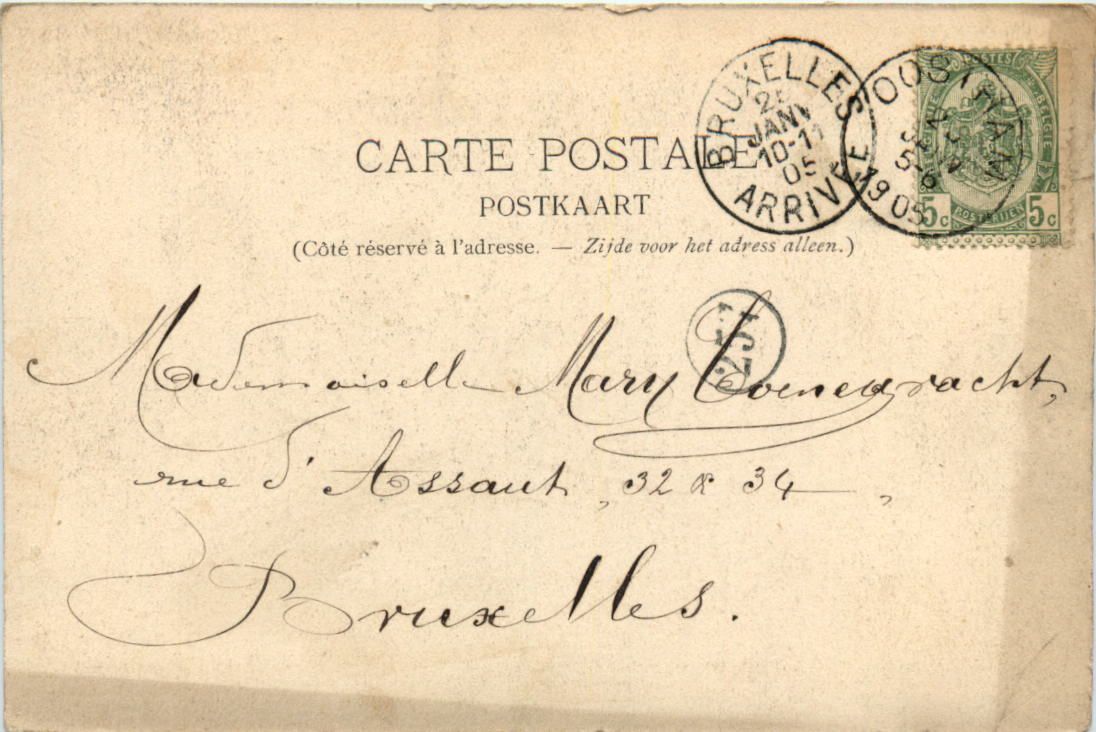 CARTE POSTALE
POSTKAART
(Côté réservé à l'adresse. — Zijde voor het adress alleen.)
BRUXELLES
JANV
10-11
05
ARRIVÉE
OOSTHAM
5-6
1905
POSTERIJEN
5c 5c
Mademoiselle Mary Coenegracht,
rue d'Assaut, 32 & 34,
Bruxelles.